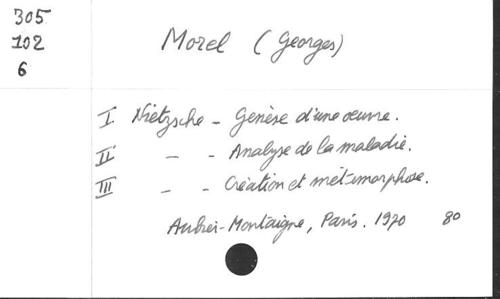 305
102
6
Morel (Georges)
I Nietzsche - Genèse d'une oeuvre.
II - - Analyse de la maladie.
III - - Création et métamorphose.
Aubier-Montaigne, Paris. 1970 80